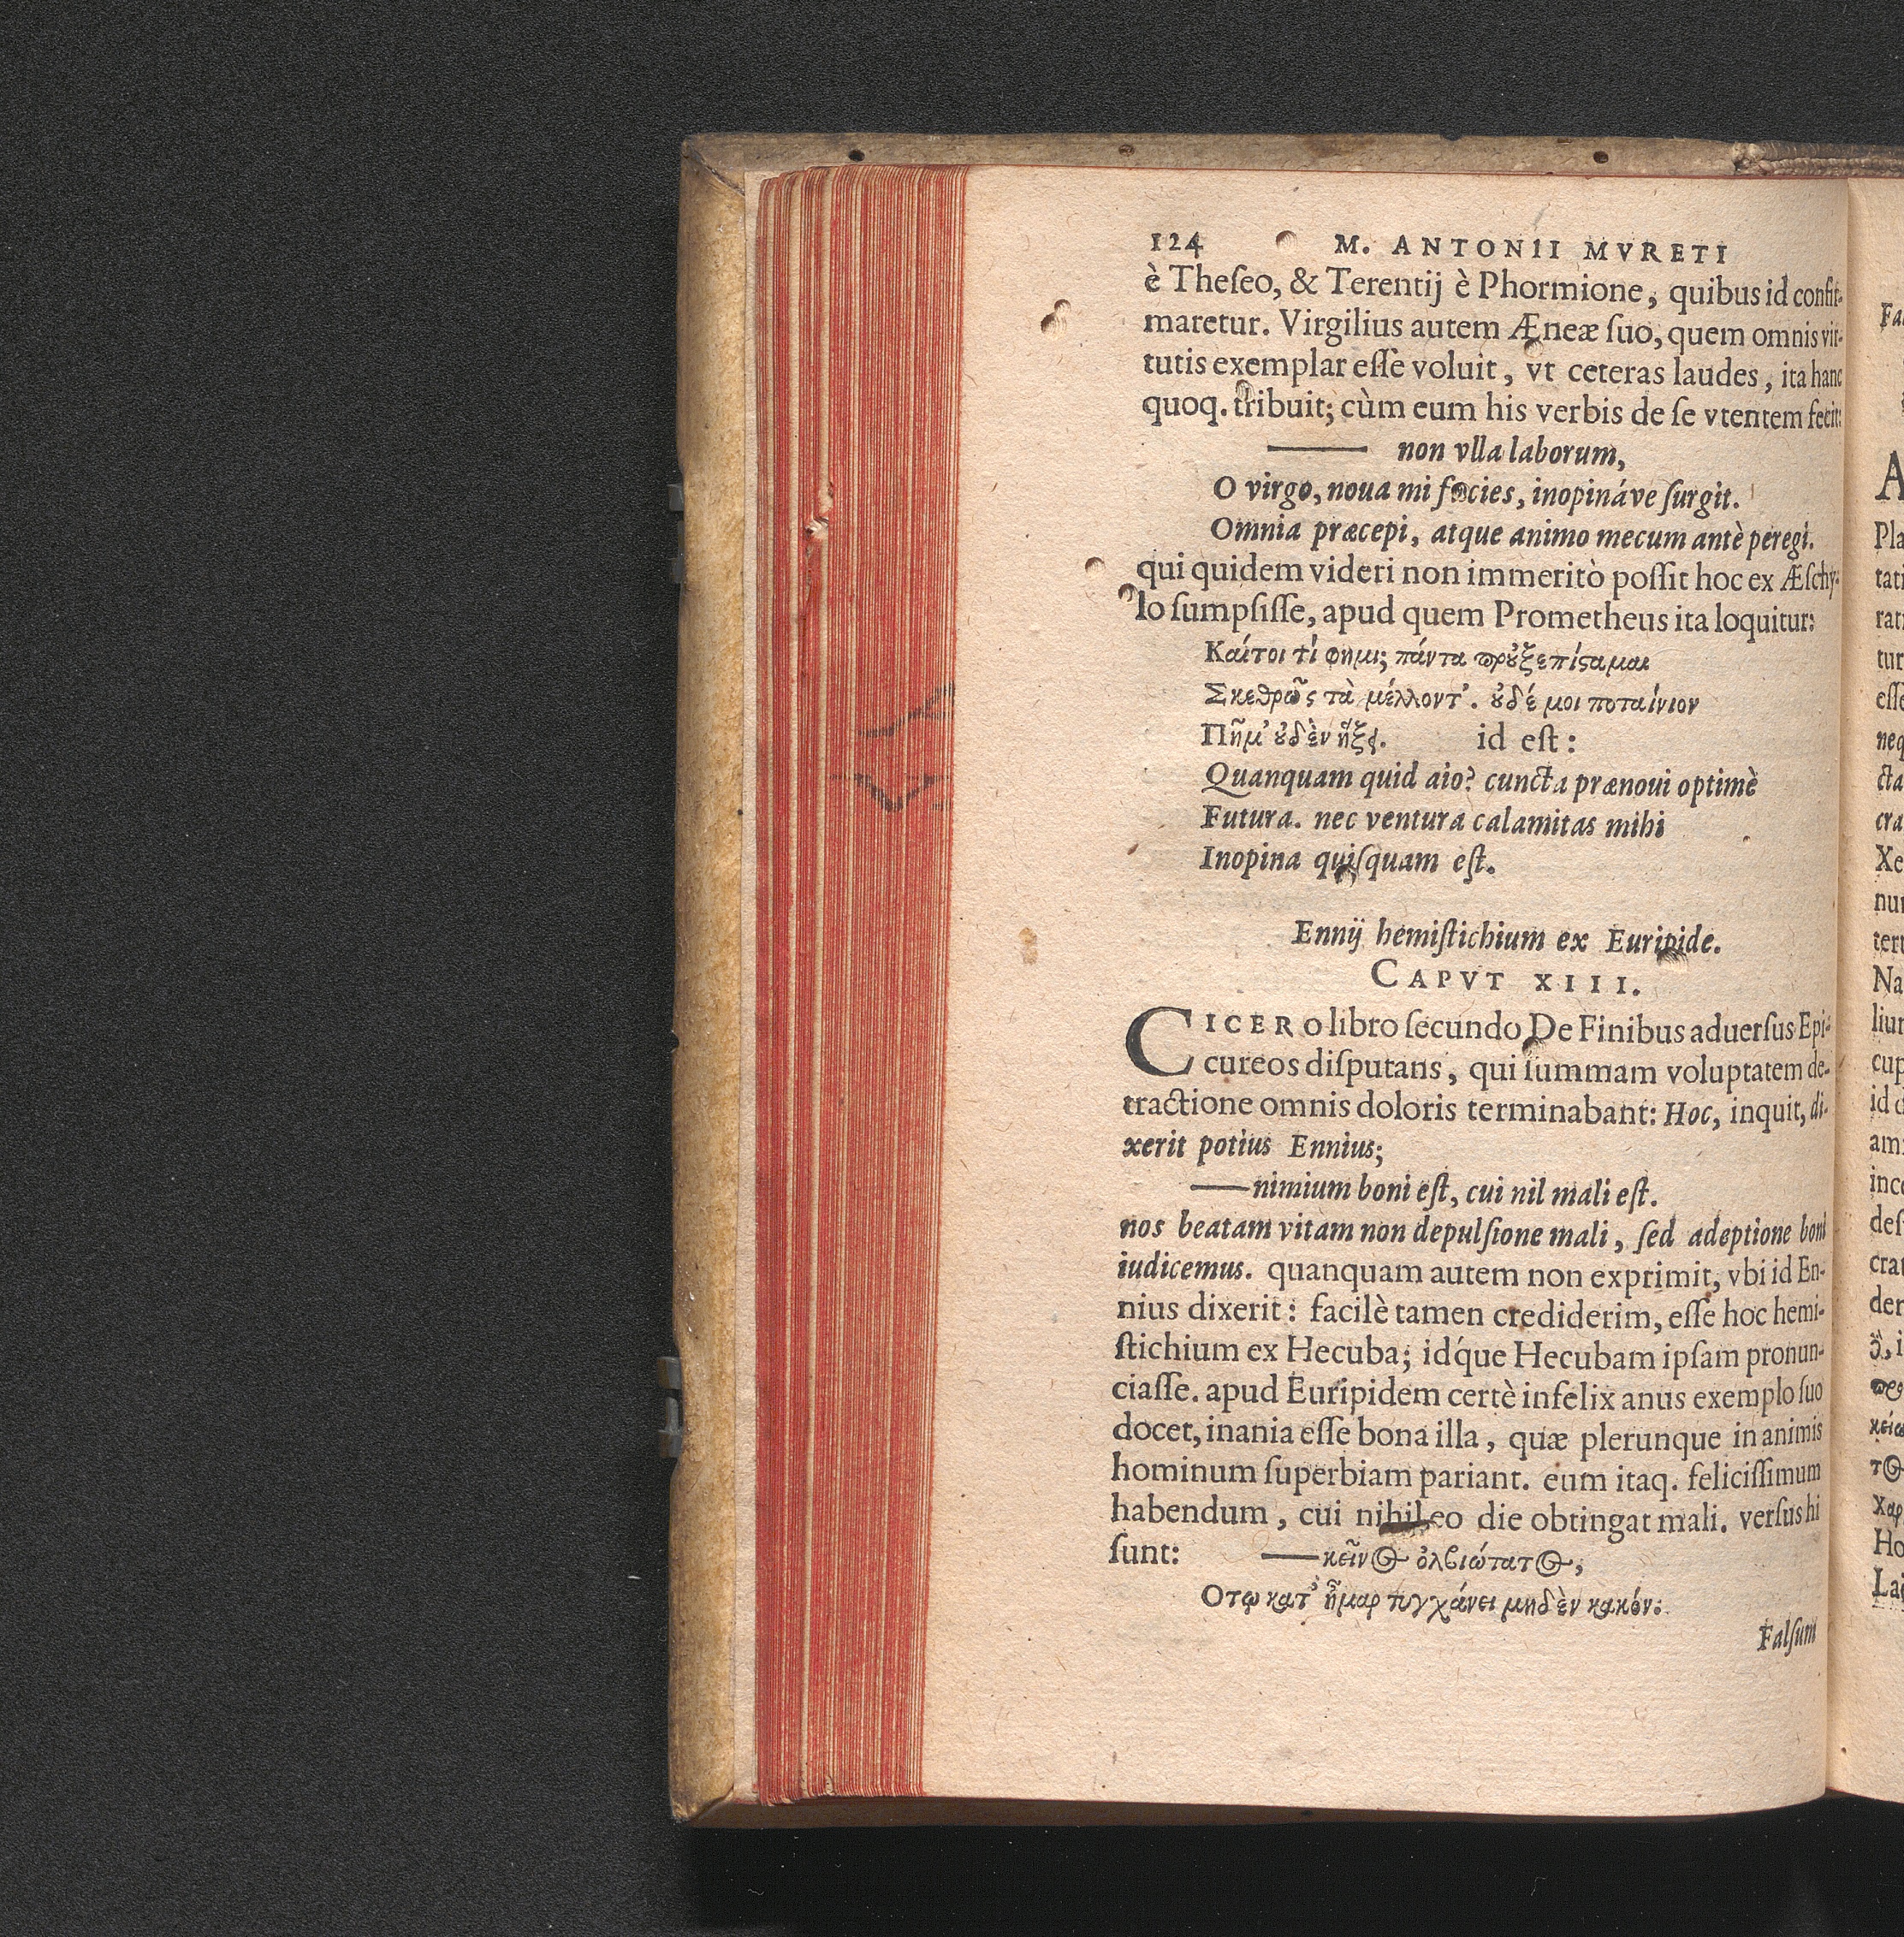 124 M. ANTONII MVRETI
è Theſeo, & Terentij è Phormione, quibus id confir-
maretur. Virgilius autem Æneæ ſuo, quem omnis vir-
tutis exemplar eſſe voluit, vt ceteras laudes, ita hanc
quoq. tribuit; cùm eum his verbis de ſe vtentem fecit:
—— non vlla laborum,
O virgo, noua mi facies, inopináve ſurgit.
Omnia præcepi, atque animo mecum antè peregi.
qui quidem videri non immeritò poſſit hoc ex Æſchy-
lo ſumpſiſſe, apud quem Prometheus ita loquitur:
Καίτοι τί φημι; πάντα προὐξεπίϛαμαι
Σκεθρῶς τὰ μέλλοντ'. ȣδέ μοι ποταίνιον
Πῆμ' ȣδὲν ἥξει. id eſt:
Quanquam quid aio? cuncta prænoui optimè
Futura. nec ventura calamitas mihi
Inopina quiſquam eſt.
Ennij hemiſtichium ex Euripide.
CAPVT XIII.
CICERO libro ſecundo De Finibus aduerſus Epi-
cureos diſputans, qui ſummam voluptatem de-
tractione omnis doloris terminabant: Hoc, inquit, di-
xerit potius Ennius;
—— nimium boni eſt, cui nil mali eſt.
nos beatam vitam non depulſione mali, ſed adeptione boni
iudicemus. quanquam autem non exprimit, vbi id En-
nius dixerit: facilè tamen crediderim, eſſe hoc hemi-
ſtichium ex Hecuba; idq́ue Hecubam ipſam pronun-
ciaſſe. apud Euripidem certè infelix anus exemplo ſuo
docet, inania eſſe bona illa, quæ plerunque in animis
hominum ſuperbiam pariant. eum itaq. feliciſſimum
habendum, cui nihil eo die obtingat mali. verſus hi
ſunt: —— κεῖνος ὀλβιώτατος,
Οτῳ κατ' ἦμαρ τυγχάνει μηδὲν κακόν.
Falſum